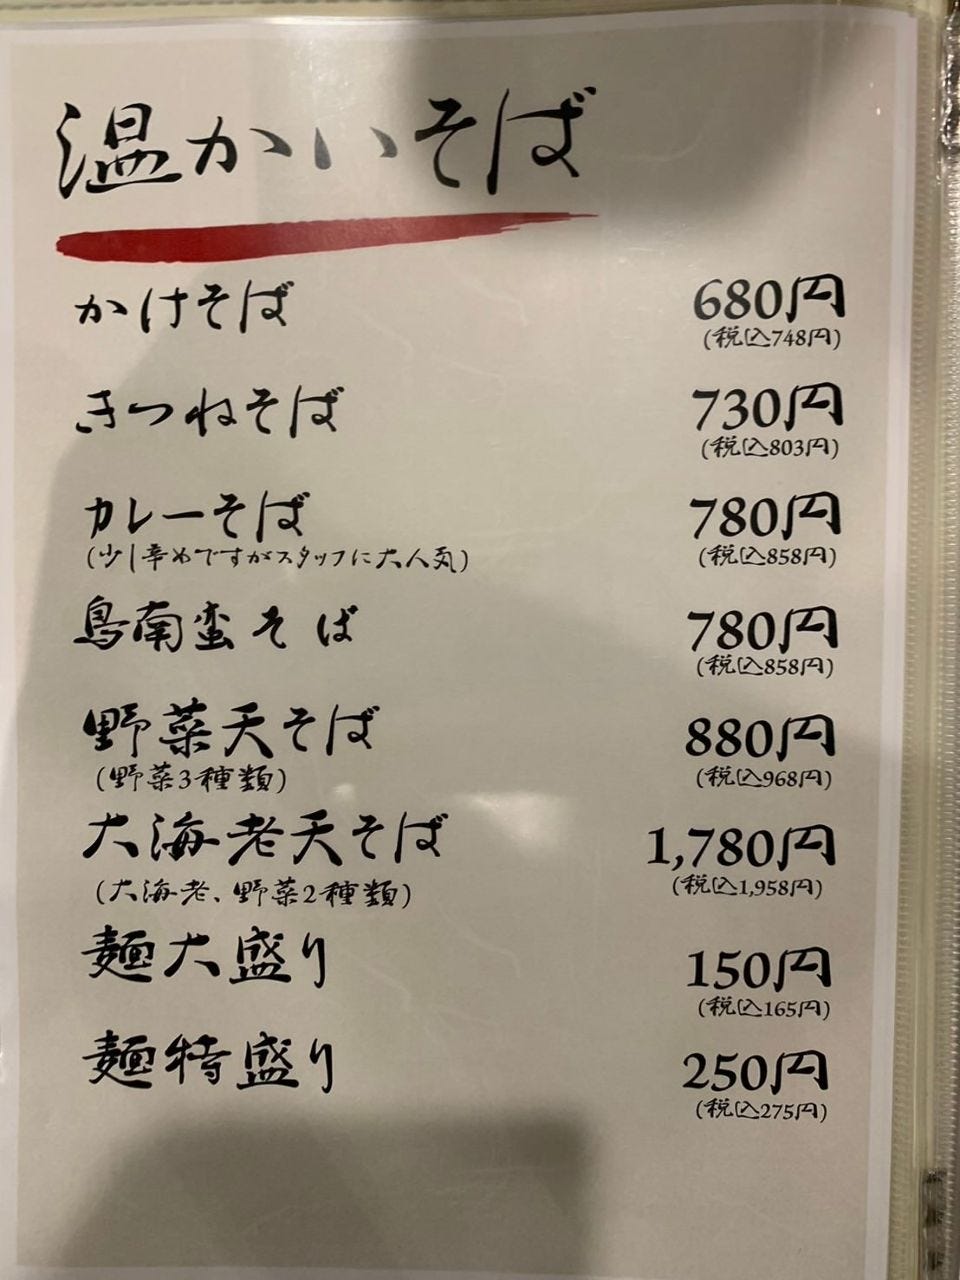 温かいそば
かけそば 680円
(税込748円)
きつねそば 730円
(税込803円)
カレーそば 780円
(少し辛めですがスタッフに大人気) (税込858円)
鳥南蛮そば 780円
(税込858円)
野菜天そば 880円
(野菜3種類) (税込968円)
大海老天そば 1,780円
(大海老、野菜2種類) (税込1,958円)
麺大盛り 150円
(税込165円)
麺特盛り 250円
(税込275円)